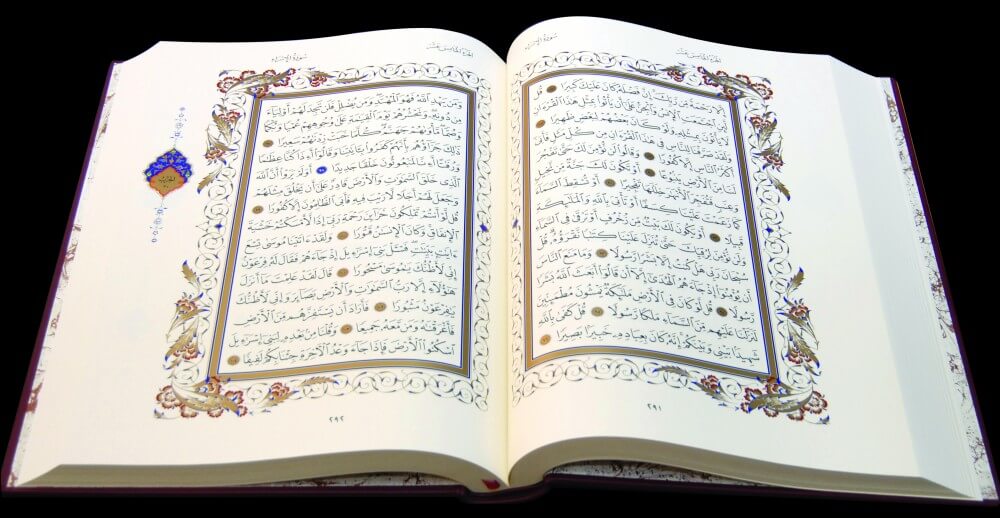 سورة الإسراء
الجزء الخامس عشر
إِلَّا رَحْمَةً مِنْ رَبِّكَ إِنَّ فَضْلَهُ كَانَ عَلَيْكَ كَبِيرًا ٨٧ قُلْ
لَئِنِ اجْتَمَعَتِ الْإِنْسُ وَالْجِنُّ عَلَى أَنْ يَأْتُوا بِمِثْلِ هَذَا الْقُرْآنِ
لَا يَأْتُونَ بِمِثْلِهِ وَلَوْ كَانَ بَعْضُهُمْ لِبَعْضٍ ظَهِيرًا ٨٨
وَلَقَدْ صَرَّفْنَا لِلنَّاسِ فِي هَذَا الْقُرْآنِ مِنْ كُلِّ مَثَلٍ فَأَبَى
أَكْثَرُ النَّاسِ إِلَّا كُفُورًا ٨٩ وَقَالُوا لَنْ نُؤْمِنَ لَكَ حَتَّى تَفْجُرَ
لَنَا مِنَ الْأَرْضِ يَنْبُوعًا ٩٠ أَوْ تَكُونَ لَكَ جَنَّةٌ مِنْ نَخِيلٍ
وَعِنَبٍ فَتُفَجِّرَ الْأَنْهَارَ خِلَالَهَا تَفْجِيرًا ٩١ أَوْ تُسْقِطَ السَّمَاءَ
كَمَا زَعَمْتَ عَلَيْنَا كِسَفًا أَوْ تَأْتِيَ بِاللَّهِ وَالْمَلَائِكَةِ
قَبِيلًا ٩٢ أَوْ يَكُونَ لَكَ بَيْتٌ مِنْ زُخْرُفٍ أَوْ تَرْقَى فِي السَّمَاءِ
وَلَنْ نُؤْمِنَ لِرُقِيِّكَ حَتَّى تُنَزِّلَ عَلَيْنَا كِتَابًا نَقْرَؤُهُ قُلْ
سُبْحَانَ رَبِّي هَلْ كُنْتُ إِلَّا بَشَرًا رَسُولًا ٩٣ وَمَا مَنَعَ النَّاسَ
أَنْ يُؤْمِنُوا إِذْ جَاءَهُمُ الْهُدَى إِلَّا أَنْ قَالُوا أَبَعَثَ اللَّهُ بَشَرًا
رَسُولًا ٩٤ قُلْ لَوْ كَانَ فِي الْأَرْضِ مَلَائِكَةٌ يَمْشُونَ مُطْمَئِنِّينَ
لَنَزَّلْنَا عَلَيْهِمْ مِنَ السَّمَاءِ مَلَكًا رَسُولًا ٩٥ قُلْ كَفَى بِاللَّهِ
شَهِيدًا بَيْنِي وَبَيْنَكُمْ إِنَّهُ كَانَ بِعِبَادِهِ خَبِيرًا بَصِيرًا ٩٦
٢٩١
الجزء الخامس عشر
سورة الإسراء
وَمَنْ يَهْدِ اللَّهُ فَهُوَ الْمُهْتَدِ وَمَنْ يُضْلِلْ فَلَنْ تَجِدَ لَهُمْ أَوْلِيَاءَ
مِنْ دُونِهِ وَنَحْشُرُهُمْ يَوْمَ الْقِيَامَةِ عَلَى وُجُوهِهِمْ عُمْيًا وَبُكْمًا
وَصُمًّا مَأْوَاهُمْ جَهَنَّمُ كُلَّمَا خَبَتْ زِدْنَاهُمْ سَعِيرًا ٩٧
ذَلِكَ جَزَاؤُهُمْ بِأَنَّهُمْ كَفَرُوا بِآيَاتِنَا وَقَالُوا أَإِذَا كُنَّا عِظَامًا
وَرُفَاتًا أَإِنَّا لَمَبْعُوثُونَ خَلْقًا جَدِيدًا ٩٨ أَوَلَمْ يَرَوْا أَنَّ اللَّهَ
الَّذِي خَلَقَ السَّمَاوَاتِ وَالْأَرْضَ قَادِرٌ عَلَى أَنْ يَخْلُقَ مِثْلَهُمْ
وَجَعَلَ لَهُمْ أَجَلًا لَا رَيْبَ فِيهِ فَأَبَى الظَّالِمُونَ إِلَّا كُفُورًا ٩٩
قُلْ لَوْ أَنْتُمْ تَمْلِكُونَ خَزَائِنَ رَحْمَةِ رَبِّي إِذًا لَأَمْسَكْتُمْ خَشْيَةَ
الْإِنْفَاقِ وَكَانَ الْإِنْسَانُ قَتُورًا ١٠٠ وَلَقَدْ آتَيْنَا مُوسَى تِسْعَ
آيَاتٍ بَيِّنَاتٍ فَسْئَلْ بَنِي إِسْرَائِيلَ إِذْ جَاءَهُمْ فَقَالَ لَهُ فِرْعَوْنُ
إِنِّي لَأَظُنُّكَ يَا مُوسَى مَسْحُورًا ١٠١ قَالَ لَقَدْ عَلِمْتَ مَا أَنْزَلَ
هَؤُلَاءِ إِلَّا رَبُّ السَّمَاوَاتِ وَالْأَرْضِ بَصَائِرَ وَإِنِّي لَأَظُنُّكَ
يَا فِرْعَوْنُ مَثْبُورًا ١٠٢ فَأَرَادَ أَنْ يَسْتَفِزَّهُمْ مِنَ الْأَرْضِ
فَأَغْرَقْنَاهُ وَمَنْ مَعَهُ جَمِيعًا ١٠٣ وَقُلْنَا مِنْ بَعْدِهِ لِبَنِي إِسْرَائِيلَ
اسْكُنُوا الْأَرْضَ فَإِذَا جَاءَ وَعْدُ الْآخِرَةِ جِئْنَا بِكُمْ لَفِيفًا ١٠٤
٢٩٢